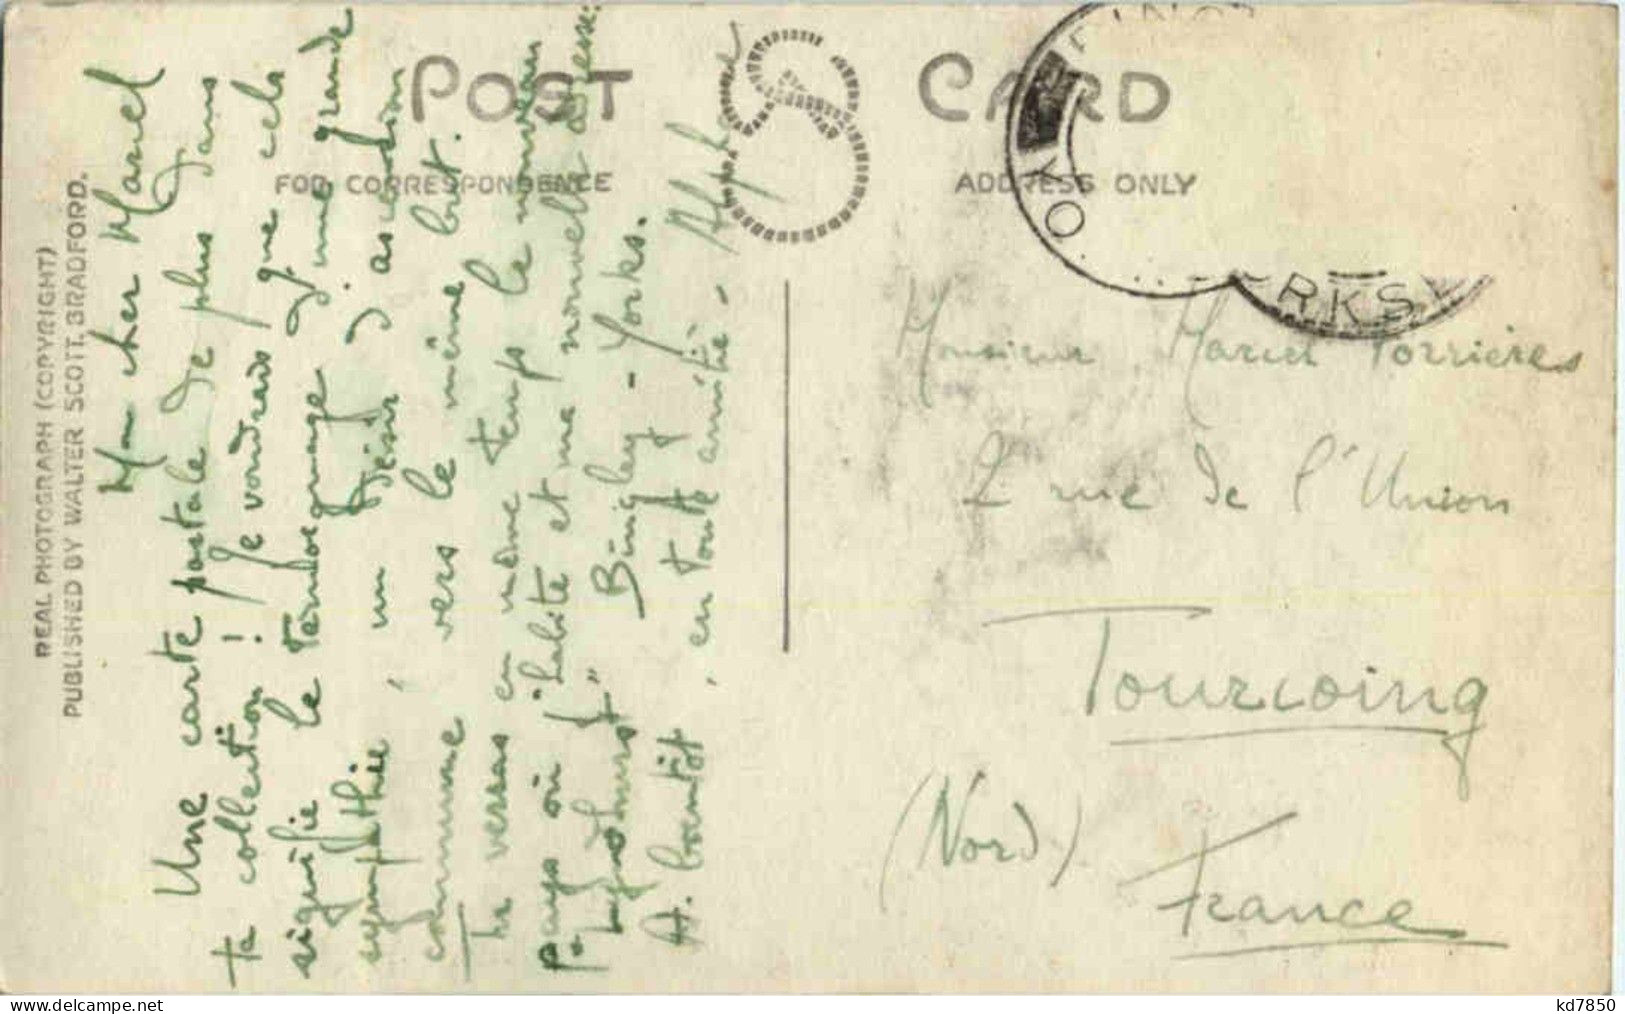 POST CARD
FOR CORRESPONDENCE
ADDRESS ONLY
REAL PHOTOGRAPH (COPYRIGHT)
PUBLISHED BY WALTER SCOTT, BRADFORD.
Mon cher Marcel
Une carte postale de plus dans
ta collection ! Je voudrais que cela
signifie le témoignage d'une grande
sympathie, un désir d'ascension
commune vers le même but.
Tu verras en même temps le nouveau
pays où j'habite et ma nouvelle adresse:
"Lyndhurst" Bingley - Yorks.
A bientôt, en toute amitié -
Monsieur Marcel Torrières
2 rue de l'Union
Tourcoing
(Nord)
France
YO RKS
kd7850